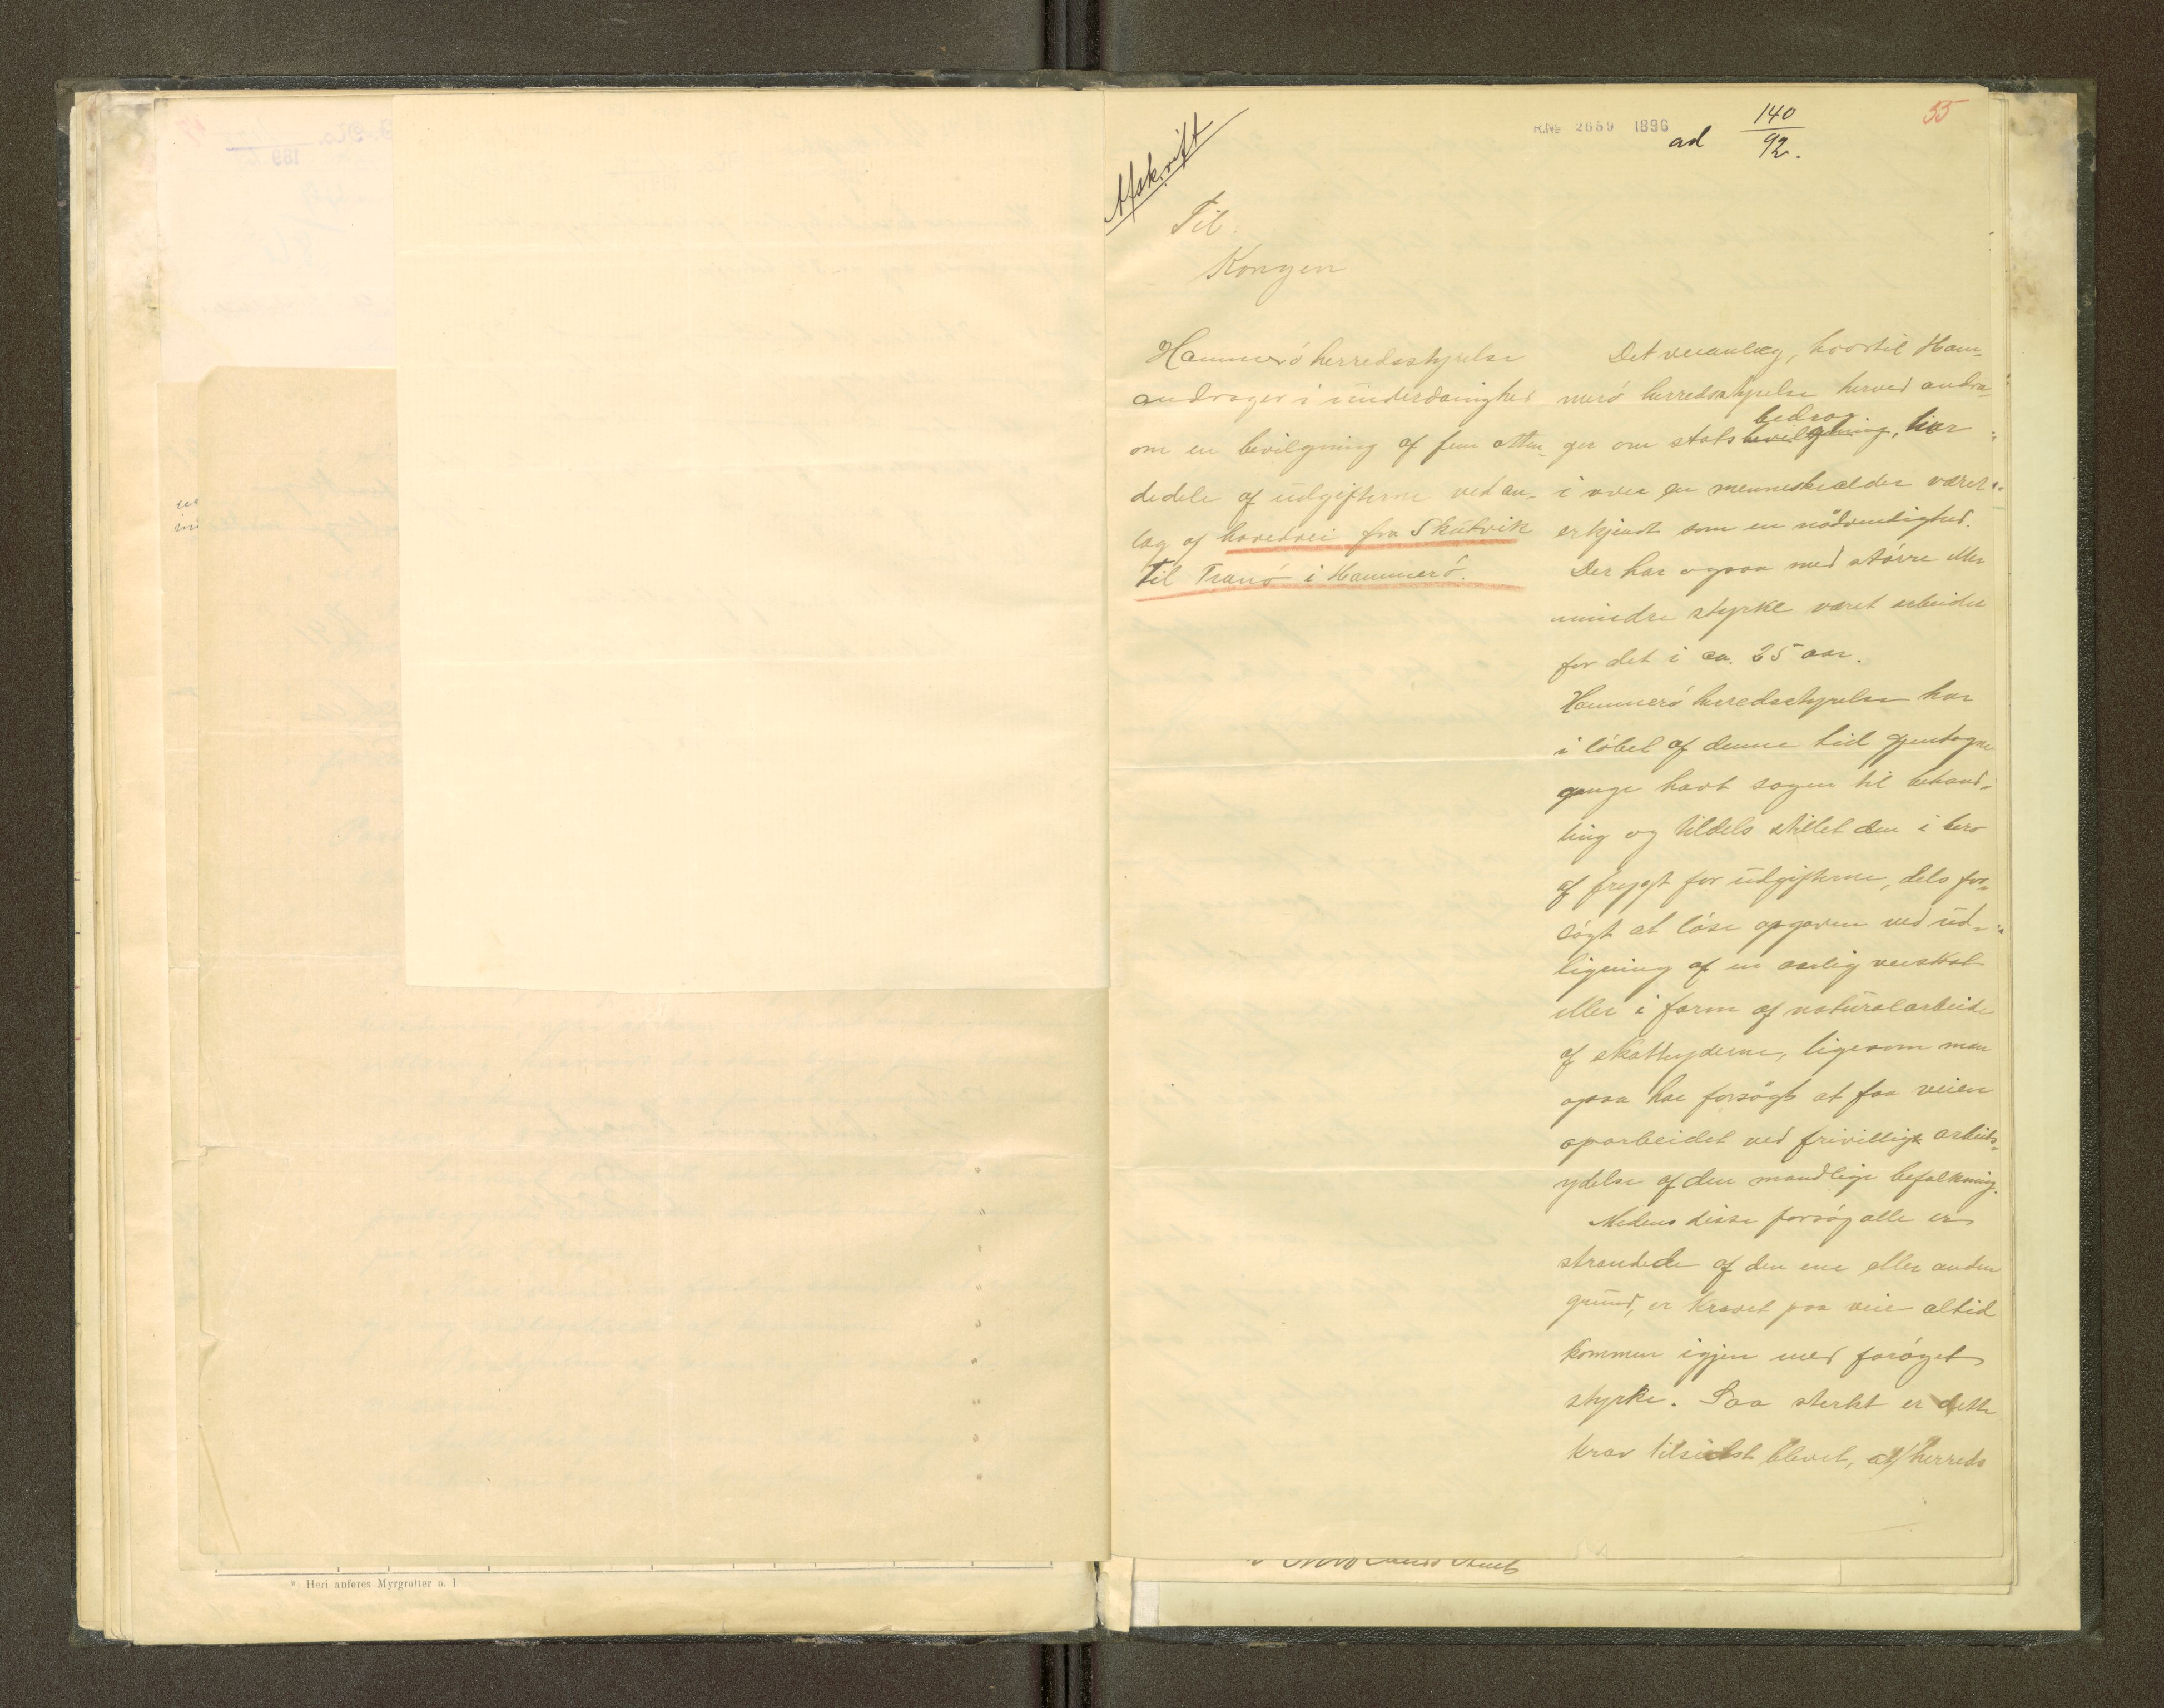 Afskrift
R.No 2659 1896
ad 140/92.
55
Til
Kongen
Hammerö herredsstyrelse
andrager i underdanighed
om en bevilgning af fem otten-
dedele af udgifterne ved an-
læg af hovedvei fra Skutvik
til Tranö i Hammerö.
Det veianlæg, hvortil Ham-
merö herredsstyrelse herved andra-
bedrag
ger om statsbevilgning, har
i over en menneskealder været
erkjendt som en nödvendighed.
Der har ogsaa med större eller
mindre styrke været arbeidet
for det i ca. 25 aar.
Hammerö herredsstyrelse har
i löbet af denne tid gjentagne
gange havt sagen til behand-
ling og tildels stillet den i bero
af frygt for udgifterne, dels for-
sögt at löse opgaven ved ud-
ligning af en aarlig veiskat
eller i form af naturalarbeide
af skatteyderne, ligesom man
ogsaa har forsögt at faa veien
oparbeidet ved frivillige arbeids-
ydelse af den mandlige befolkning.
Medens disse forsög alle er
strandede af den ene eller anden
grund, er kravet paa veie altid
kommen igjen med foröget
styrke. Saa sterkt er dette
krav tilsidst blevet, at herreds
*) Heri anføres Myrgrøfter o. l